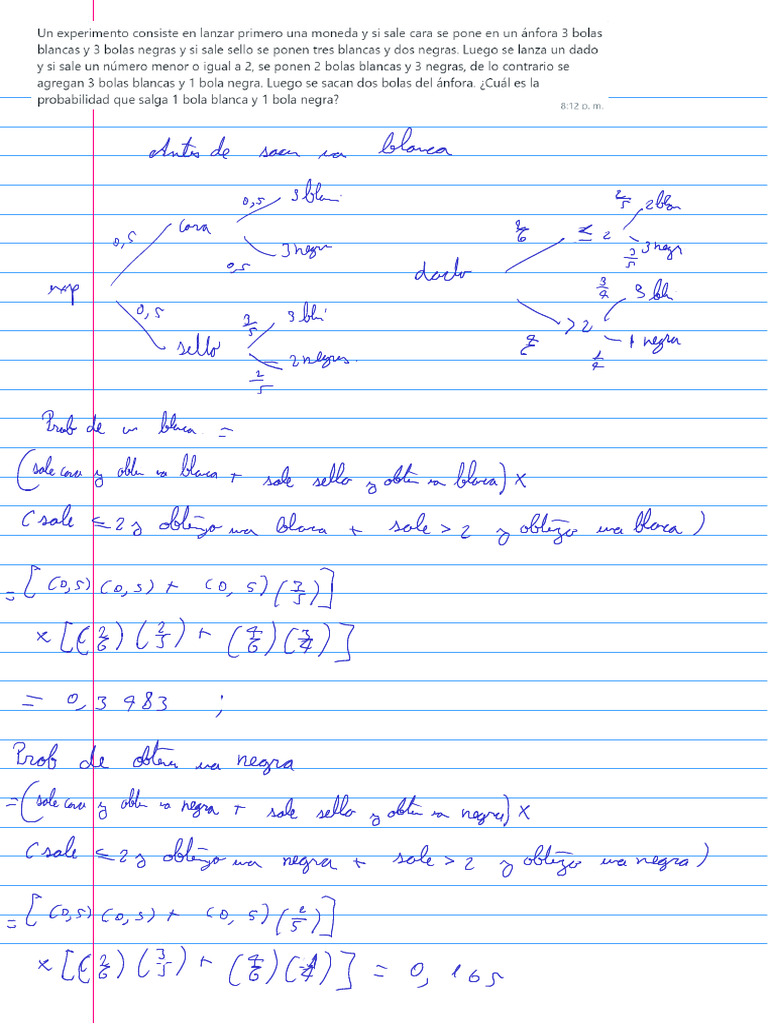 Un experimento consiste en lanzar primero una moneda y si sale cara se pone en un ánfora 3 bolas
blancas y 3 bolas negras y si sale sello se ponen tres blancas y dos negras. Luego se lanza un dado
y si sale un número menor o igual a 2, se ponen 2 bolas blancas y 3 negras, de lo contrario se
agregan 3 bolas blancas y 1 bola negra. Luego se sacan dos bolas del ánfora. ¿Cuál es la
probabilidad que salga 1 bola blanca y 1 bola negra?
8:12 p. m.
Antes de sacar una blanca
0,5 cara 0,5 3 bl
0,5 3 negr
exp
0,5 sello 3/5 3 bl
2/5 2 negras.
dado 2/6 ≤ 2 2/5 2 bla
3/5 3 negr
4/6 > 2 3/4 3 bl
1/4 1 negra
Prob de un blaca =
(sale cara y obten una blaca + sale sello y obten una blaca) x
(sale ≤ 2 y obtengo una blaca + sale > 2 y obtengo una blaca)
= [(0,5)(0,5) + (0,5)(3/5)]
x [(2/6)(2/5) + (4/6)(3/4)]
= 0,3483 ;
Prob de obtener una negra
= (sale cara y obten una negra + sale sello y obten una negra) x
(sale ≤ 2 y obtengo una negra + sale > 2 y obtengo una negra)
= [(0,5)(0,5) + (0,5)(2/5)]
x [(2/6)(3/5) + (4/6)(1/4)] = 0,165